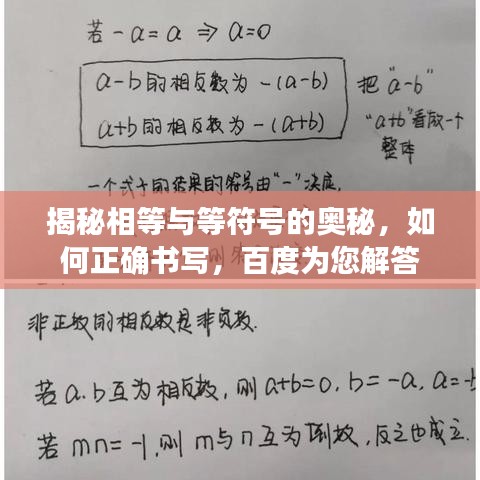 若-a=a ⇒ a=0
a-b的相反数为-(a-b)
a+b的相反数为-(a+b)
把"a-b"
"a+b"看成一个
整体
一个式子的结果的符号由"-"决定,
揭秘相等与等符号的奥秘，如
何正确书写，百度为您解答
非正数的相反数是非负数.
若a.b互为相反数,则a+b=0,b=-a,a=-b
若mn=-1,则m与n互为倒数,反之也成立.